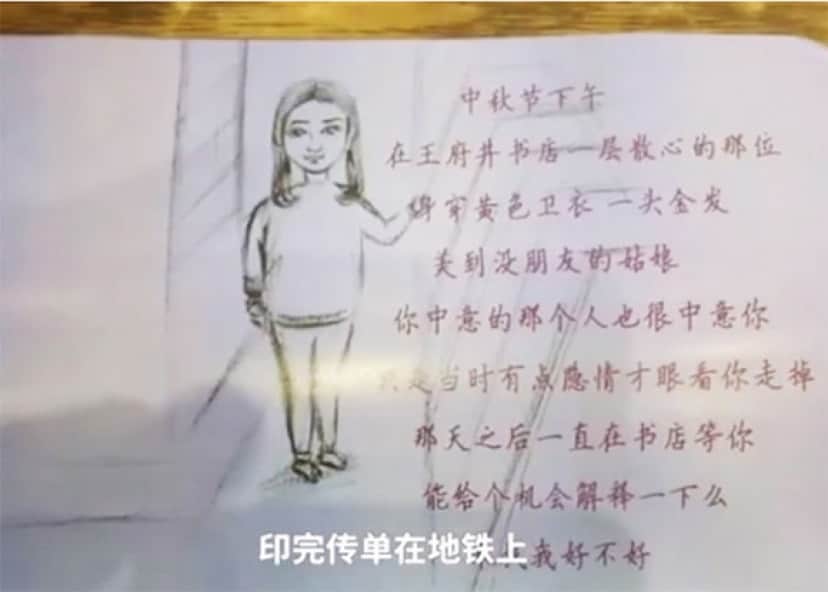 中秋节下午
在王府井书店一层散心的那位
身穿黄色卫衣 一头金发
美到没朋友的姑娘
你中意的那个人也很中意你
是当时有点隐情才眼看你走掉
那天之后一直在书店等你
能给个机会解释一下么
我好不好
印完传单在地铁上